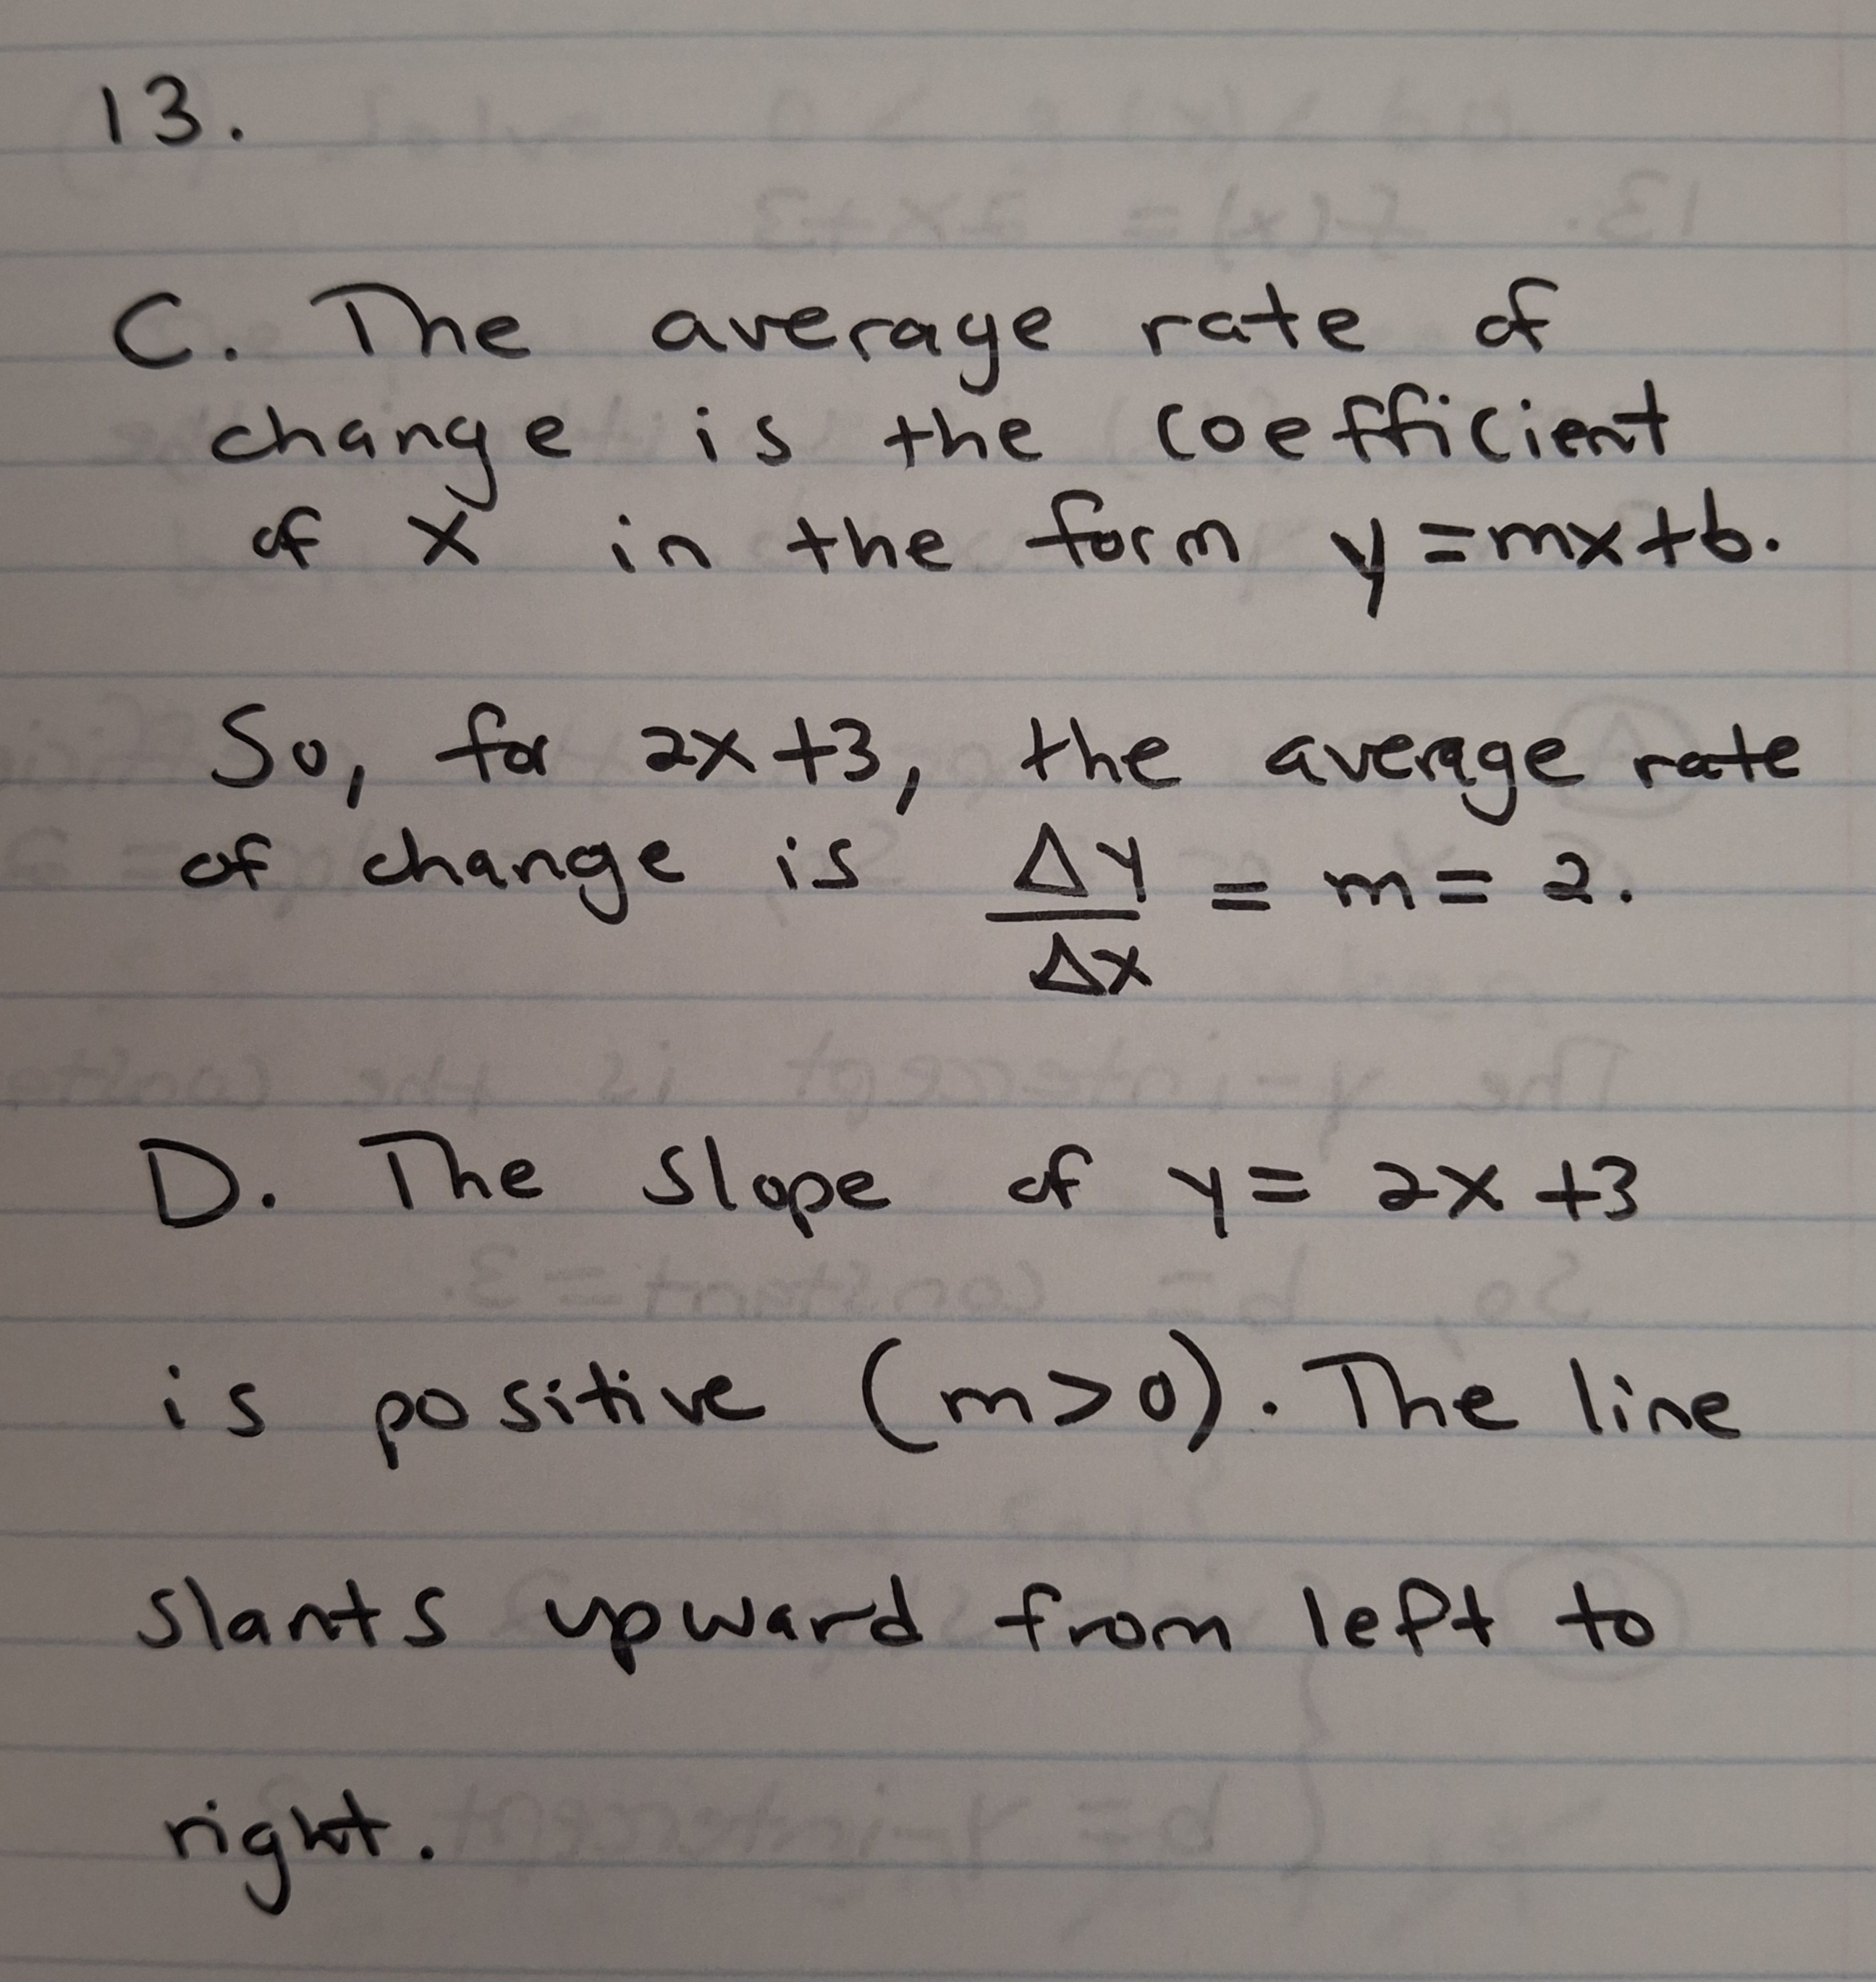 13.
C. The average rate of
change is the coefficient
of x in the form y = mx + b.
So, for 2x + 3, the average rate
of change is Δy/Δx = m = 2.
D. The slope of y = 2x + 3
is positive (m > 0). The line
slants upward from left to
right.